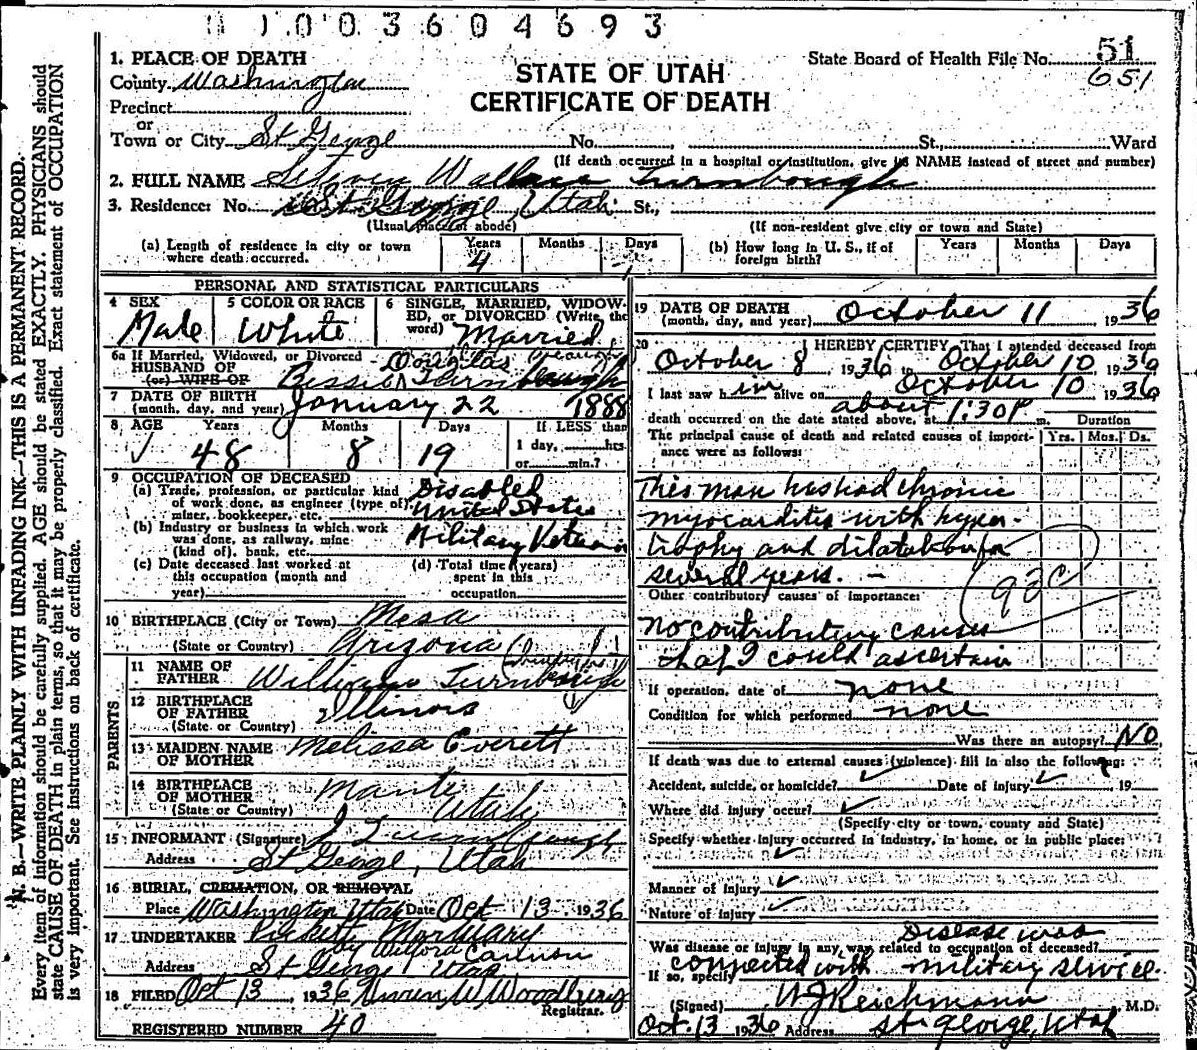 1003604693
1. PLACE OF DEATH
County Washington
Precinct
or
Town or City St George No. St., Ward
STATE OF UTAH
CERTIFICATE OF DEATH
State Board of Health File No. 51
651
(If death occurred in a hospital or institution, give its NAME instead of street and number)
2. FULL NAME Steven Wallace Turnbough
3. Residence: No. St. George, Utah St.,
(Usual place of abode) (If non-resident give city or town and State)
(a) Length of residence in city or town where death occurred. Years 4 Months Days
(b) How long in U. S., if of foreign birth? Years Months Days
PERSONAL AND STATISTICAL PARTICULARS
4 SEX Male
5 COLOR OR RACE White
6 SINGLE, MARRIED, WIDOWED, or DIVORCED (Write the word) Married
6a If Married, Widowed, or Divorced
HUSBAND OF
(or) WIFE OF Bessie Douglas Turnbough
7 DATE OF BIRTH
(month, day, and year) January 22 1888
8 AGE Years 48 Months 8 Days 19
If LESS than
1 day, hrs.
or min.?
9 OCCUPATION OF DECEASED
(a) Trade, profession, or particular kind of work done, as engineer (type of) miner, bookkeeper, etc. Disabled United States
(b) Industry or business in which work was done, as railway, mine (kind of), bank, etc. Military Veteran
(c) Date deceased last worked at this occupation (month and year)
(d) Total time (years) spent in this occupation
10 BIRTHPLACE (City or Town) Mesa
(State or Country) Arizona
PARENTS
11 NAME OF FATHER William Turnbough
12 BIRTHPLACE OF FATHER
(State or Country) Illinois
13 MAIDEN NAME OF MOTHER Melissa Everett
14 BIRTHPLACE OF MOTHER
(State or Country) Manti Utah
15 INFORMANT (Signature) J Turnbough
Address St George, Utah
16 BURIAL, CREMATION, OR REMOVAL
Place Washington Utah Date Oct 13 1936
17 UNDERTAKER Pickett Mortuary
by Wilford Cannon
Address St George Utah
18 FILED Oct 13, 1936 W. Woodbury
Registrar.
REGISTERED NUMBER 40
19 DATE OF DEATH
(month, day, and year) October 11 1936
20 I HEREBY CERTIFY, That I attended deceased from
October 8, 1936 to October 10, 1936
I last saw him alive on October 10 1936
death occurred on the date stated above, at about 1:30 P m.
The principal cause of death and related causes of importance were as follows:
Duration
Yrs. Mos. Ds.
This man has had chronic
myocarditis with hyper-
trophy and dilatation for
several years. -
93C
Other contributory causes of importance:
No contributing causes
that I could ascertain
If operation, date of none
Condition for which performed none
Was there an autopsy? No
If death was due to external causes (violence) fill in also the following:
Accident, suicide, or homicide? ✓ Date of injury ✓, 19
Where did injury occur? ✓
(Specify city or town, county and State)
Specify whether injury occurred in industry, in home, or in public place:
✓
Manner of injury ✓
Nature of injury ✓
Was disease or injury in any way related to occupation of deceased? Disease was
If so, specify connected with military service.
(Signed) W J Reichmann, M.D.
Oct. 13 1936 Address St George, Utah
N. B.—WRITE PLAINLY WITH UNFADING INK—THIS IS A PERMANENT RECORD.
Every item of information should be carefully supplied. AGE should be stated EXACTLY. PHYSICIANS should
state CAUSE OF DEATH in plain terms, so that it may be properly classified. Exact statement of OCCUPATION
is very important. See instructions on back of certificate.